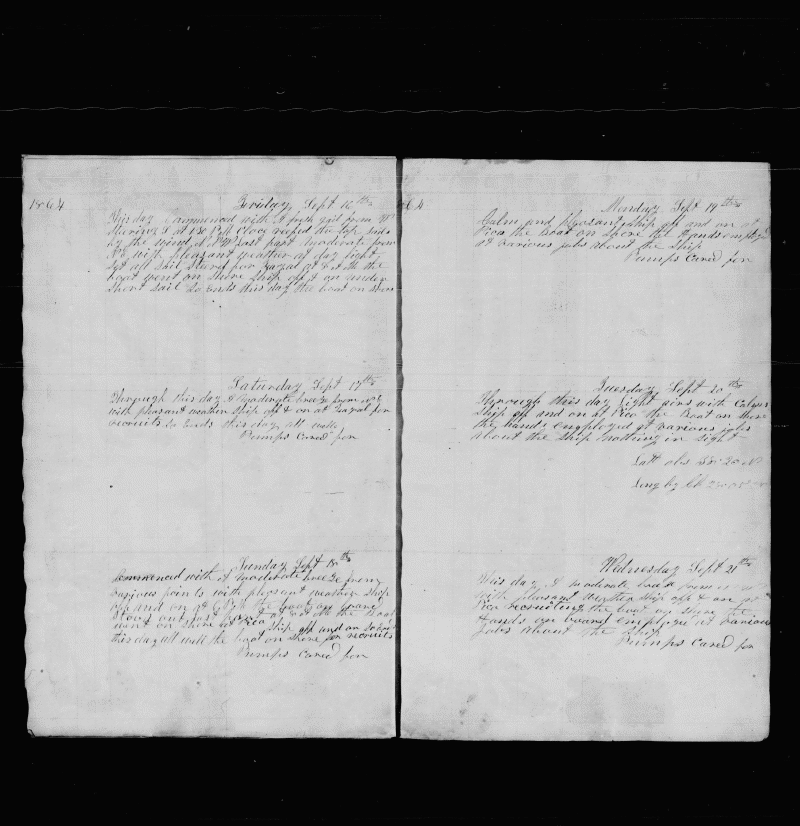 1864
Friday Sept 16th
this day Commenced with A fresh gail from
Steering at Clock reefed the top sails
by the wind last part moderate from
with pleasant weather at day light
Set all Sail Steered for Fayal at the
boat went on Shore Ship off & on under
Short Sail So ends this day the boat on Shore
Saturday Sept 17th
Through this day A Moderate breeze from
with pleasant weather Ship off & on at Fayal for
recruits So Ends this day all well
Pumps Cared for
Sunday Sept 18th
Commenced with A moderate breeze from
various points with pleasant weather Ship
off and on at the boat on Shore
Stood at the Boat
went on Shore at Pico Ship off and on So Ends
this day all well the boat on Shore for recruits
Pumps Cared for
64
Monday Sept 19th
Calm and pleasant Ship off and on at
Pico the Boat on Shore the hands employed
at various jobs about the Ship
Pumps Cared for
Tuesday Sept 20th
Through this day light with Calms
Ship off and on at Pico the Boat on Shore
the hands employed at various jobs
about the Ship nothing in Sight
Latt obs 38:20 N
Long by Ch
Wednesday Sept 21th
this day A moderate from
with pleasant Weather Ship off & on at
Pico recruiting the boat on Shore the
Hands on board employed at various
Jobs about the Ship
Pumps Cared for